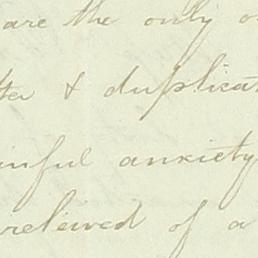 are the only o
tter & duplicat
inful anxiety
releived of a